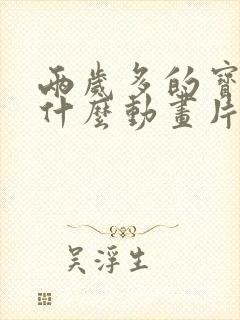 兩歲多的寶
什麼動畫片
吳浮生